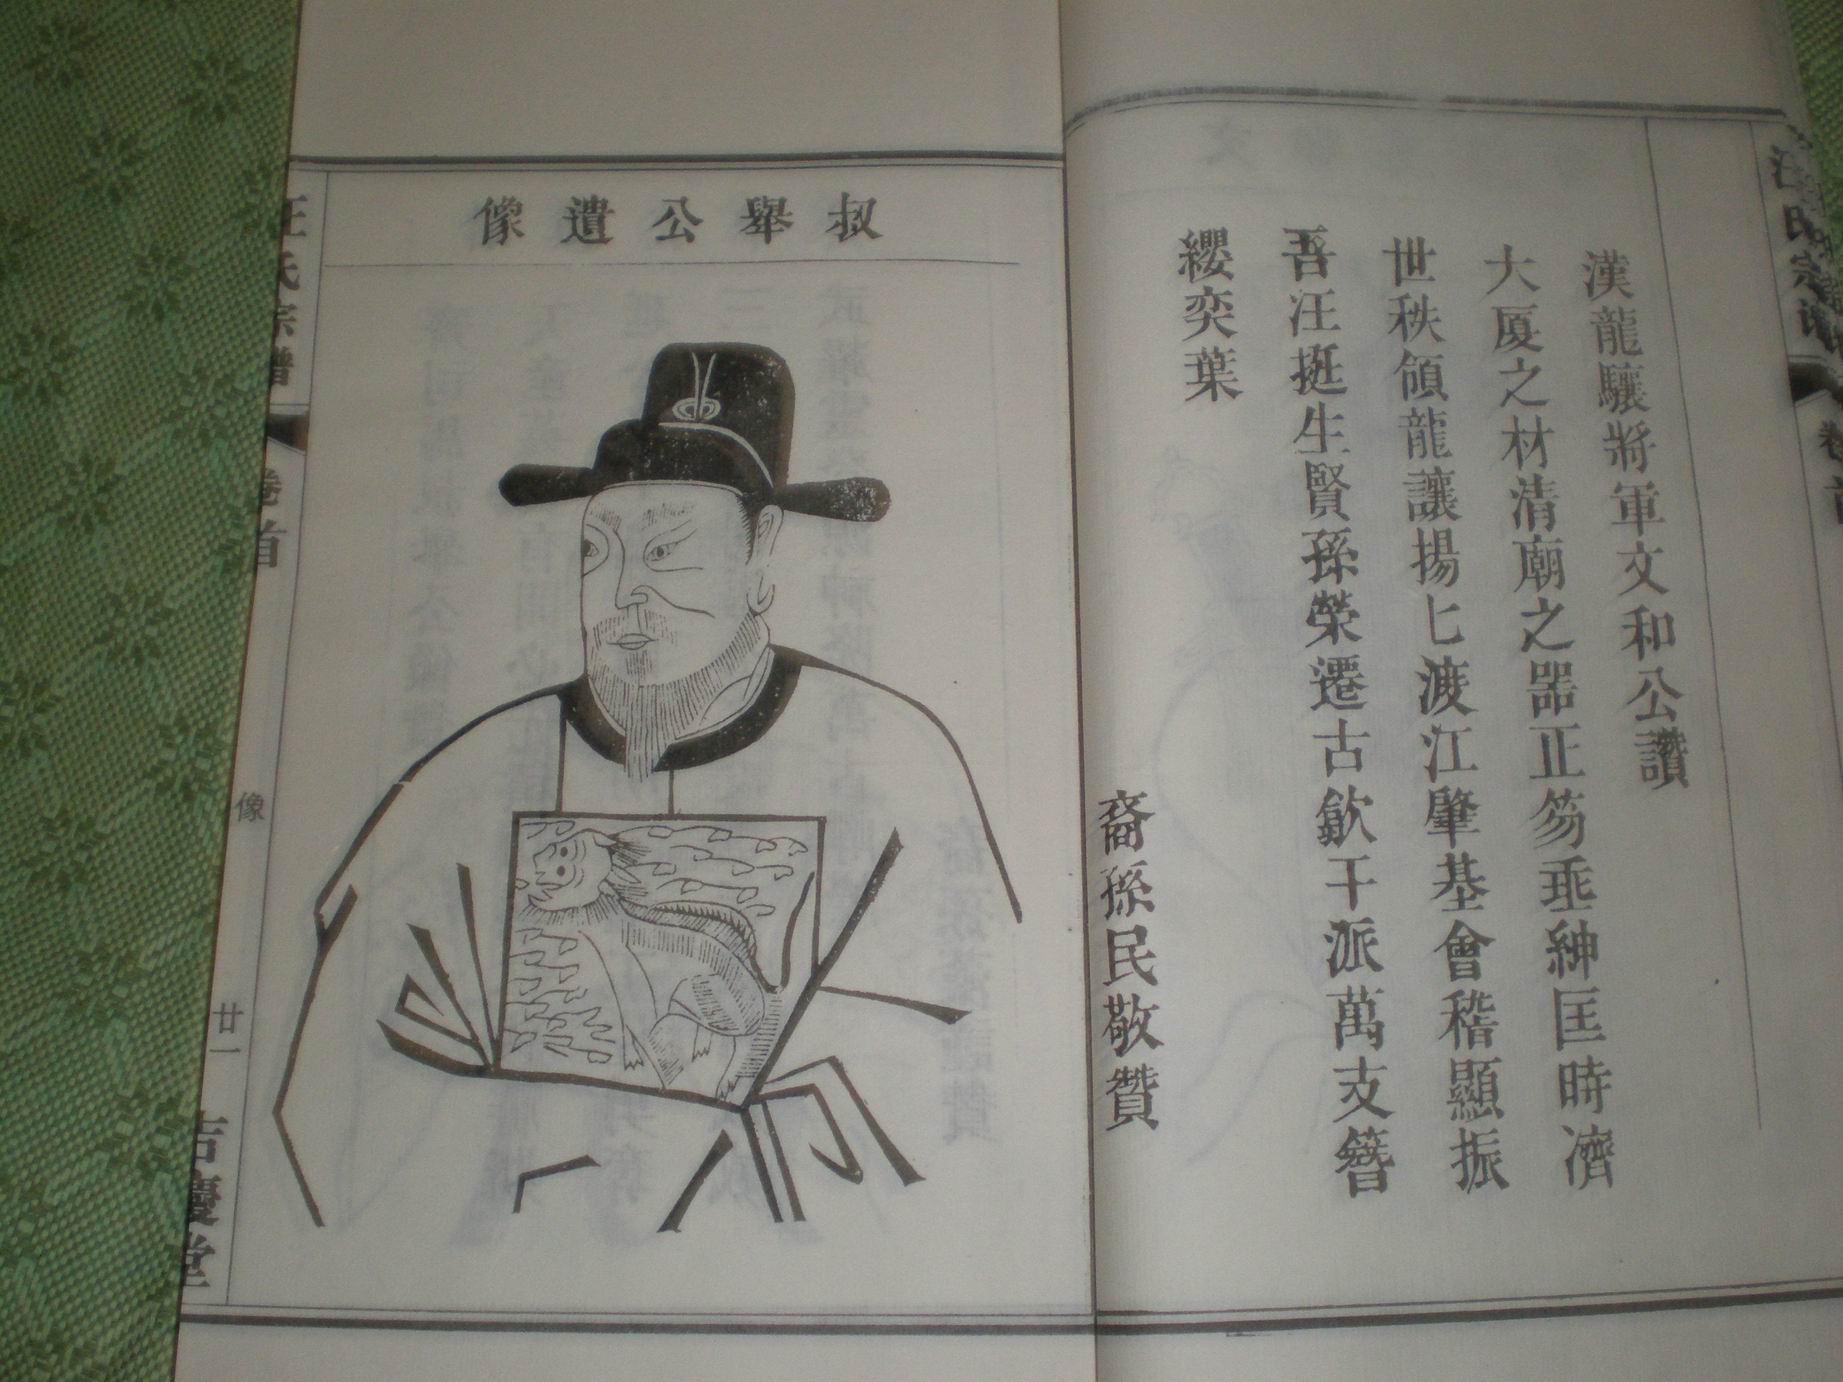 漢龍驤將軍文和公讚
大厦之材清廟之器正笏垂紳匡時濟
世秩領龍讓揚匕渡江肇基會稽顯振
吾汪挺生賢孫榮遷古歙千派萬支簪
纓奕葉
裔孫民敬贊
叔舉公遺像
汪氏宗譜
卷首
像
廿一
吉慶堂